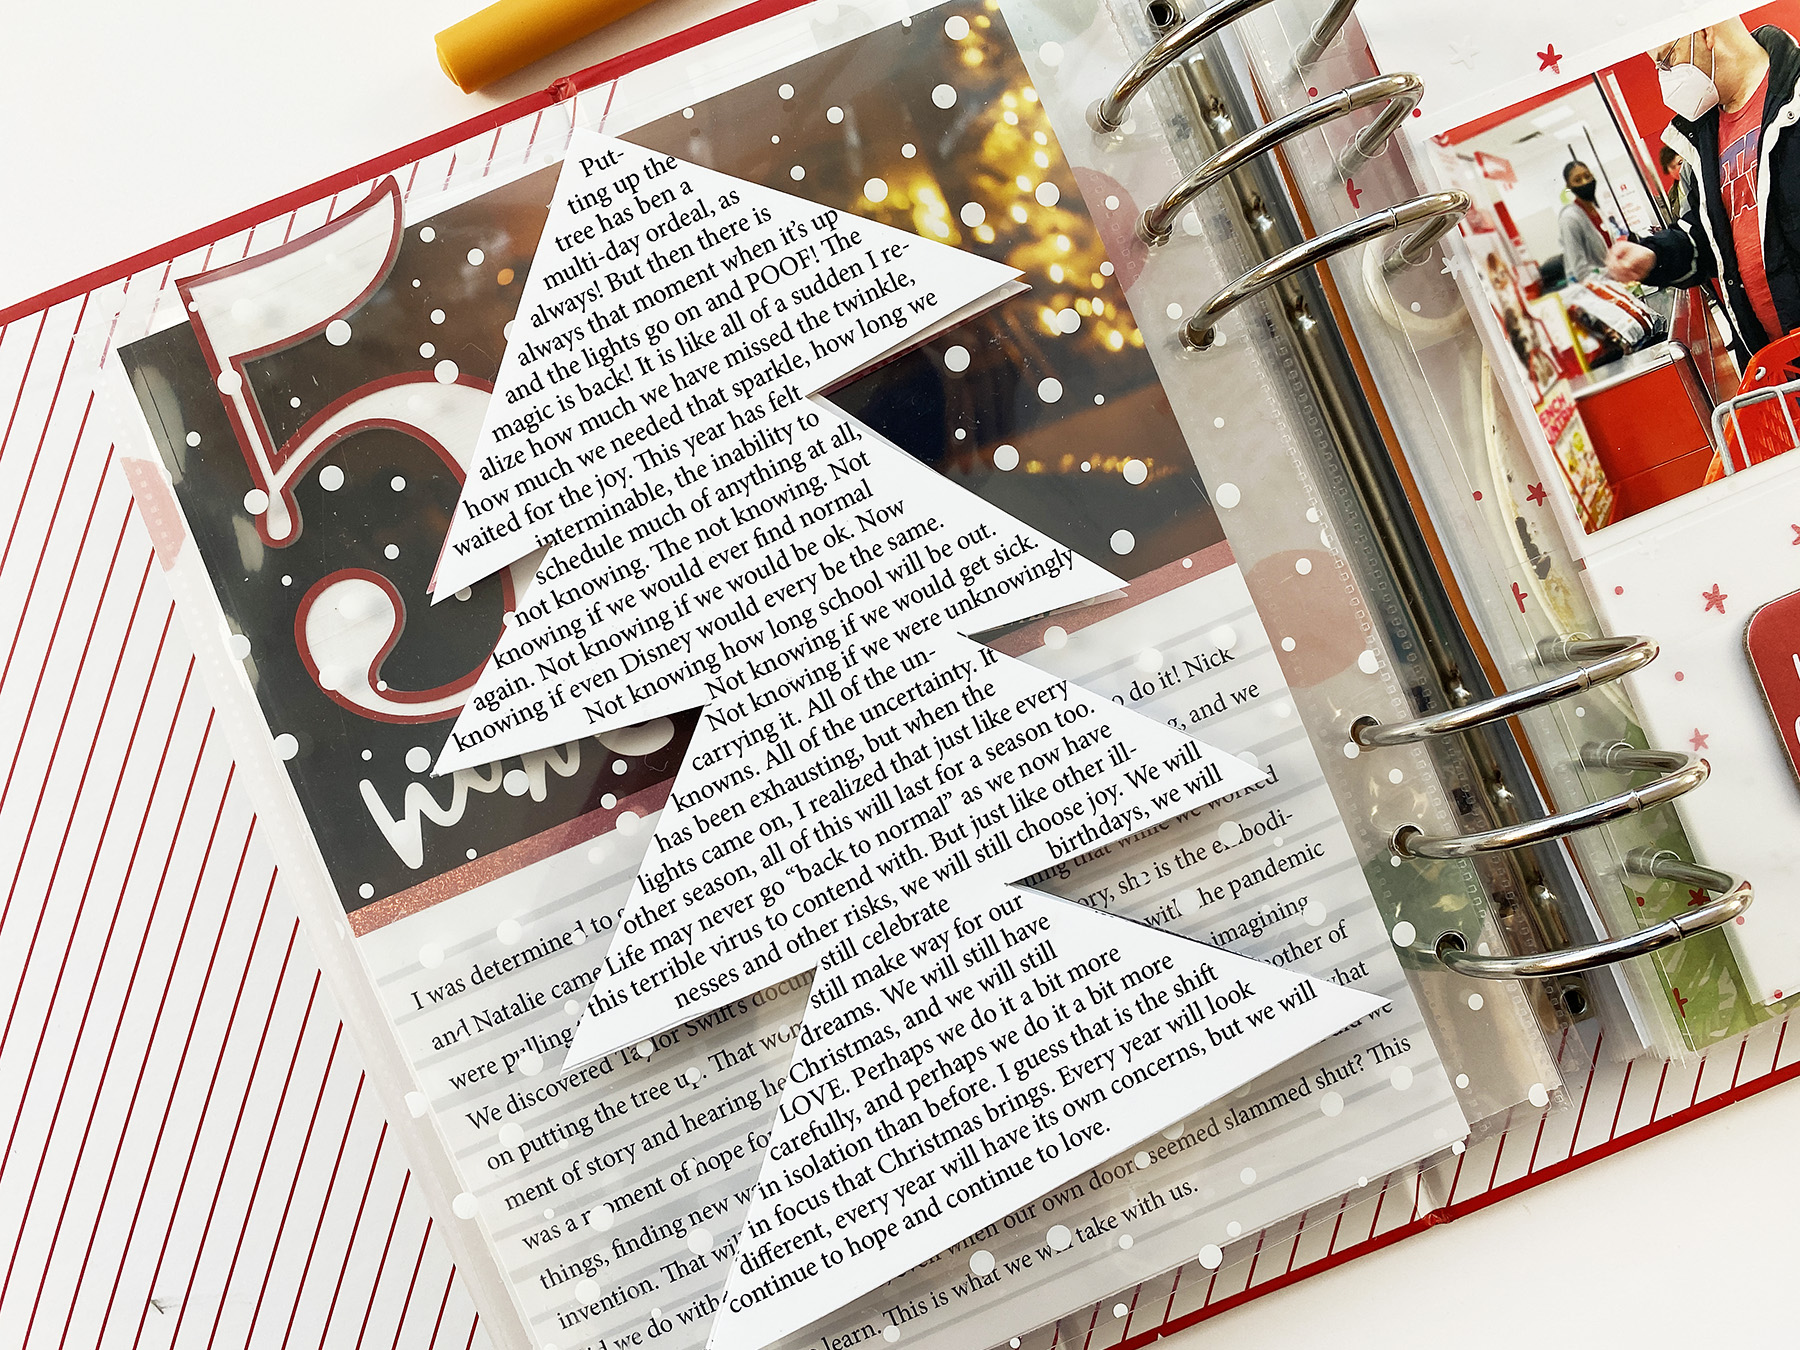 5
hope
Put-
ting up the
tree has ben a
multi-day ordeal, as
always! But then there is
always that moment when it's up
and the lights go on and POOF! The
magic is back! It is like all of a sudden I re-
alize how much we have missed the twinkle,
how much we needed that sparkle, how long we
waited for the joy. This year has felt
interminable, the inability to
schedule much of anything at all,
not knowing. The not knowing. Not
knowing if we would ever find normal
again. Not knowing if we would be ok. Now
knowing if even Disney would every be the same.
Not knowing how long school will be out.
Not knowing if we would get sick.
Not knowing if we were unknowingly
carrying it. All of the un-
knowns. All of the uncertainty. It
has been exhausting, but when the
lights came on, I realized that just like every
other season, all of this will last for a season too.
Life may never go “back to normal” as we now have
this terrible virus to contend with. But just like other ill-
nesses and other risks, we will still choose joy. We will
still celebrate birthdays, we will
still make way for our
dreams. We will still have
Christmas, and we will still
LOVE. Perhaps we do it a bit more
carefully, and perhaps we do it a bit more
in isolation than before. I guess that is the shift
in focus that Christmas brings. Every year will look
different, every year will have its own concerns, but we will
continue to hope and continue to love.
I was determined to do it! Nick
and Natalie came and we
were pulling
We discovered Taylor Swift's while we worked
on putting the tree up. That was the embodi-
ment of story and hearing she is the pandemic
was a moment of hope for imagining
things, finding new mother of
invention. That will what
we do with and we
even when our own doors seemed slammed shut? This
learn. This is what we will take with us.